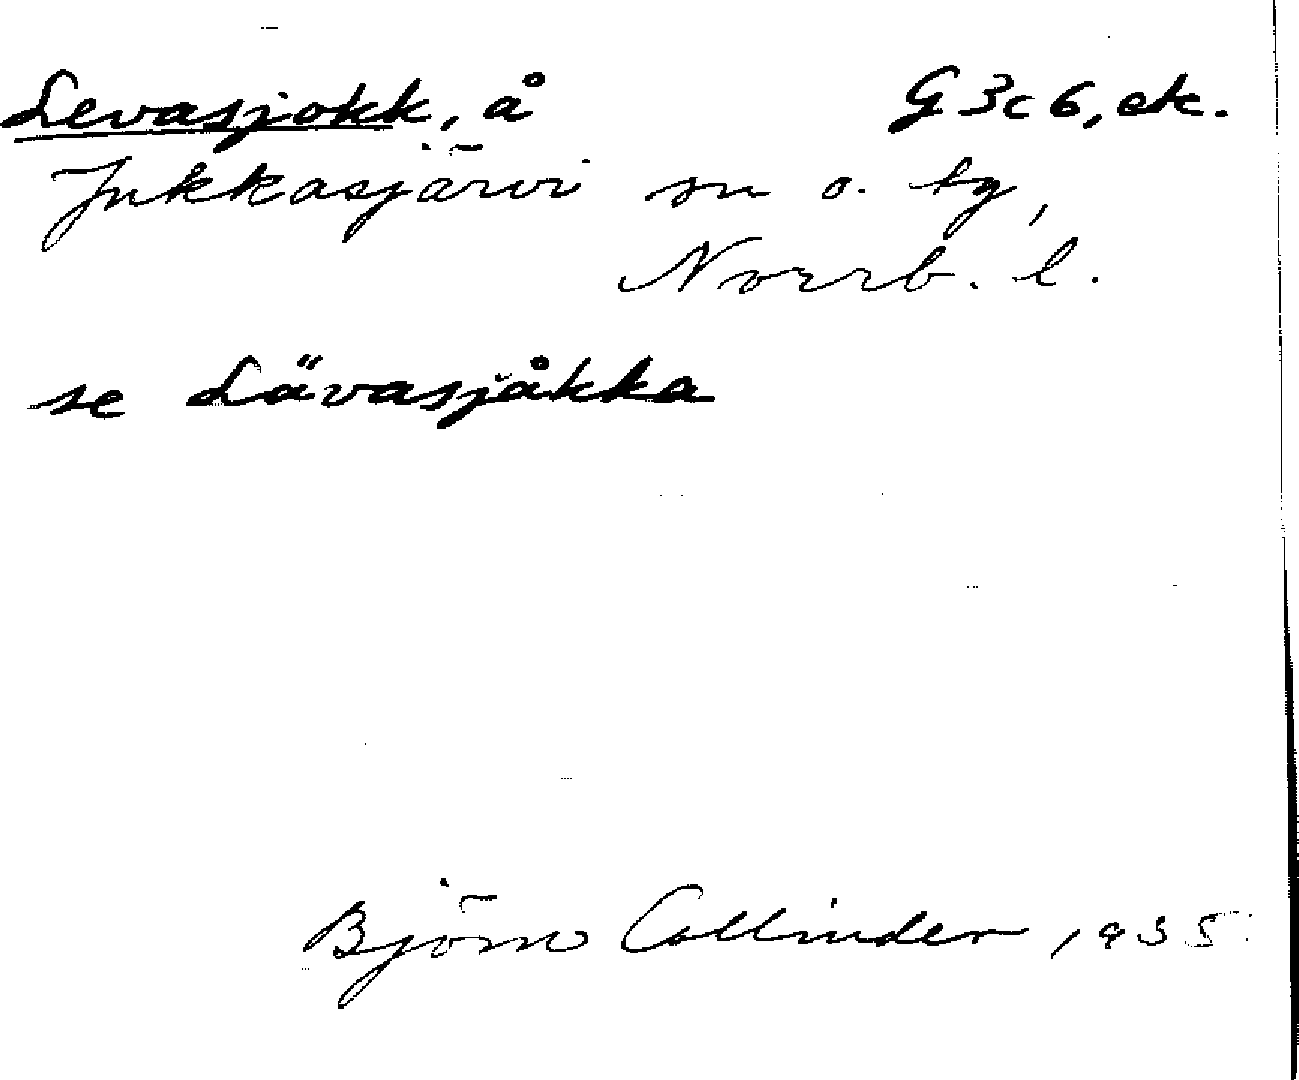 Levasjokk, å G3c6, ek.
Jukkasjärvi sn o. tg,
Norrb. l.
se Lävasjåkka
Björn Collinder, 1935